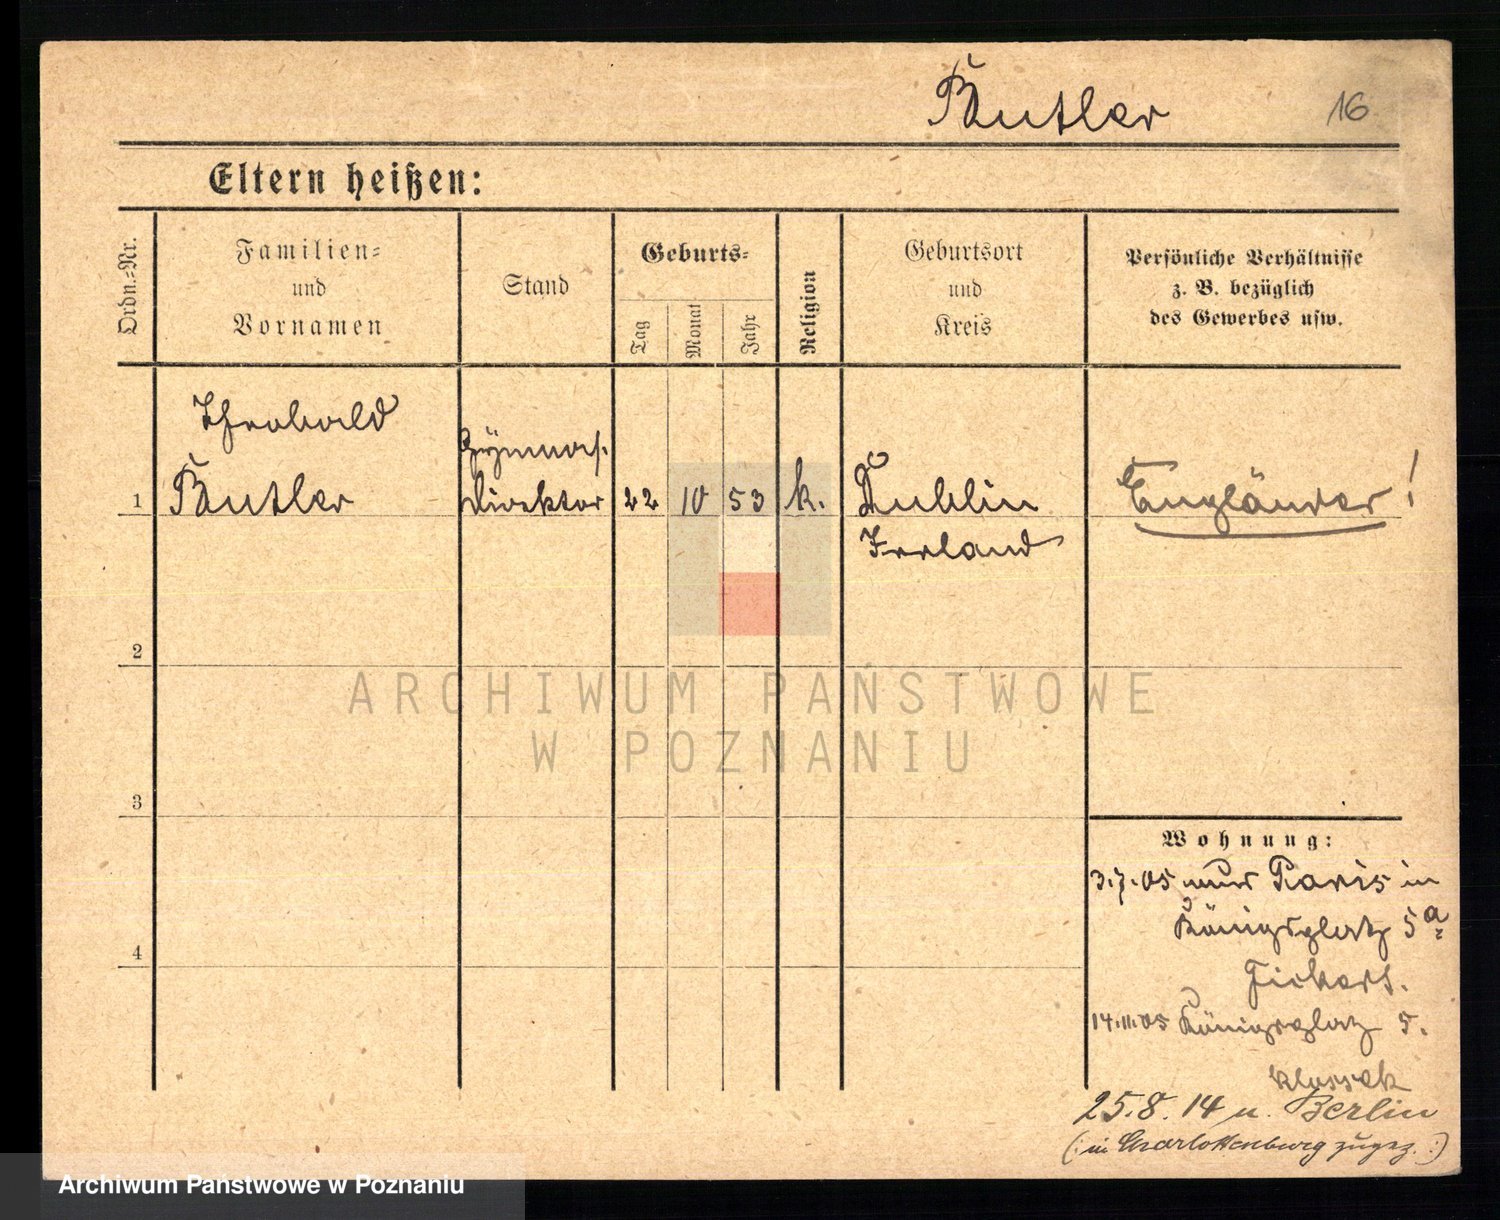 Butler
16
Eltern heißen:
Ordn.-Nr.
Familien-
und
Vornamen
Stand
Geburts-
Tag
Monat
Jahr
Religion
Geburtsort
und
Kreis
Persönliche Verhältnisse
z. B. bezüglich
des Gewerbes usw.
Theobald
Butler
Gymnas.
Direktor
22
10
53
k.
Dublin
Irrland
Engländer!
1
2
3
4
Wohnung:
3.7.05 Paris in
Königsplatz 5a
Fickert.
14.11.05 Königsplatz 5.
Klossek
25.8.14 n. Berlin
(: in Charlottenburg zugez. :)
ARCHIWUM PAŃSTWOWE
W POZNANIU
Archiwum Państwowe w Poznaniu